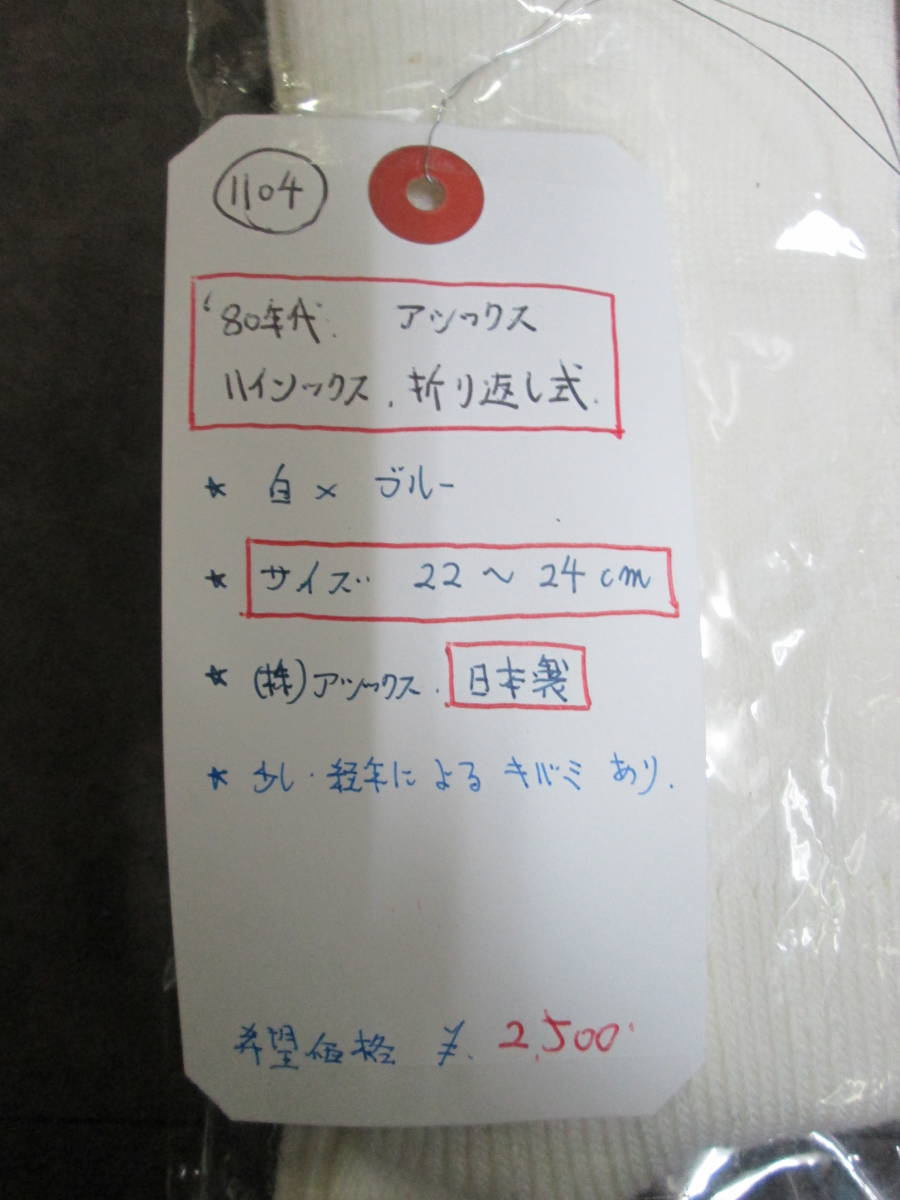 1104
'80年代. アシックス
ハイソックス. 折り返し式.
★ 白 × ブルー
★ サイズ 22 ～ 24 cm
★ (株)アシックス. 日本製
★ 少し・経年による キバミ あり.
希望価格 ¥. 2,500